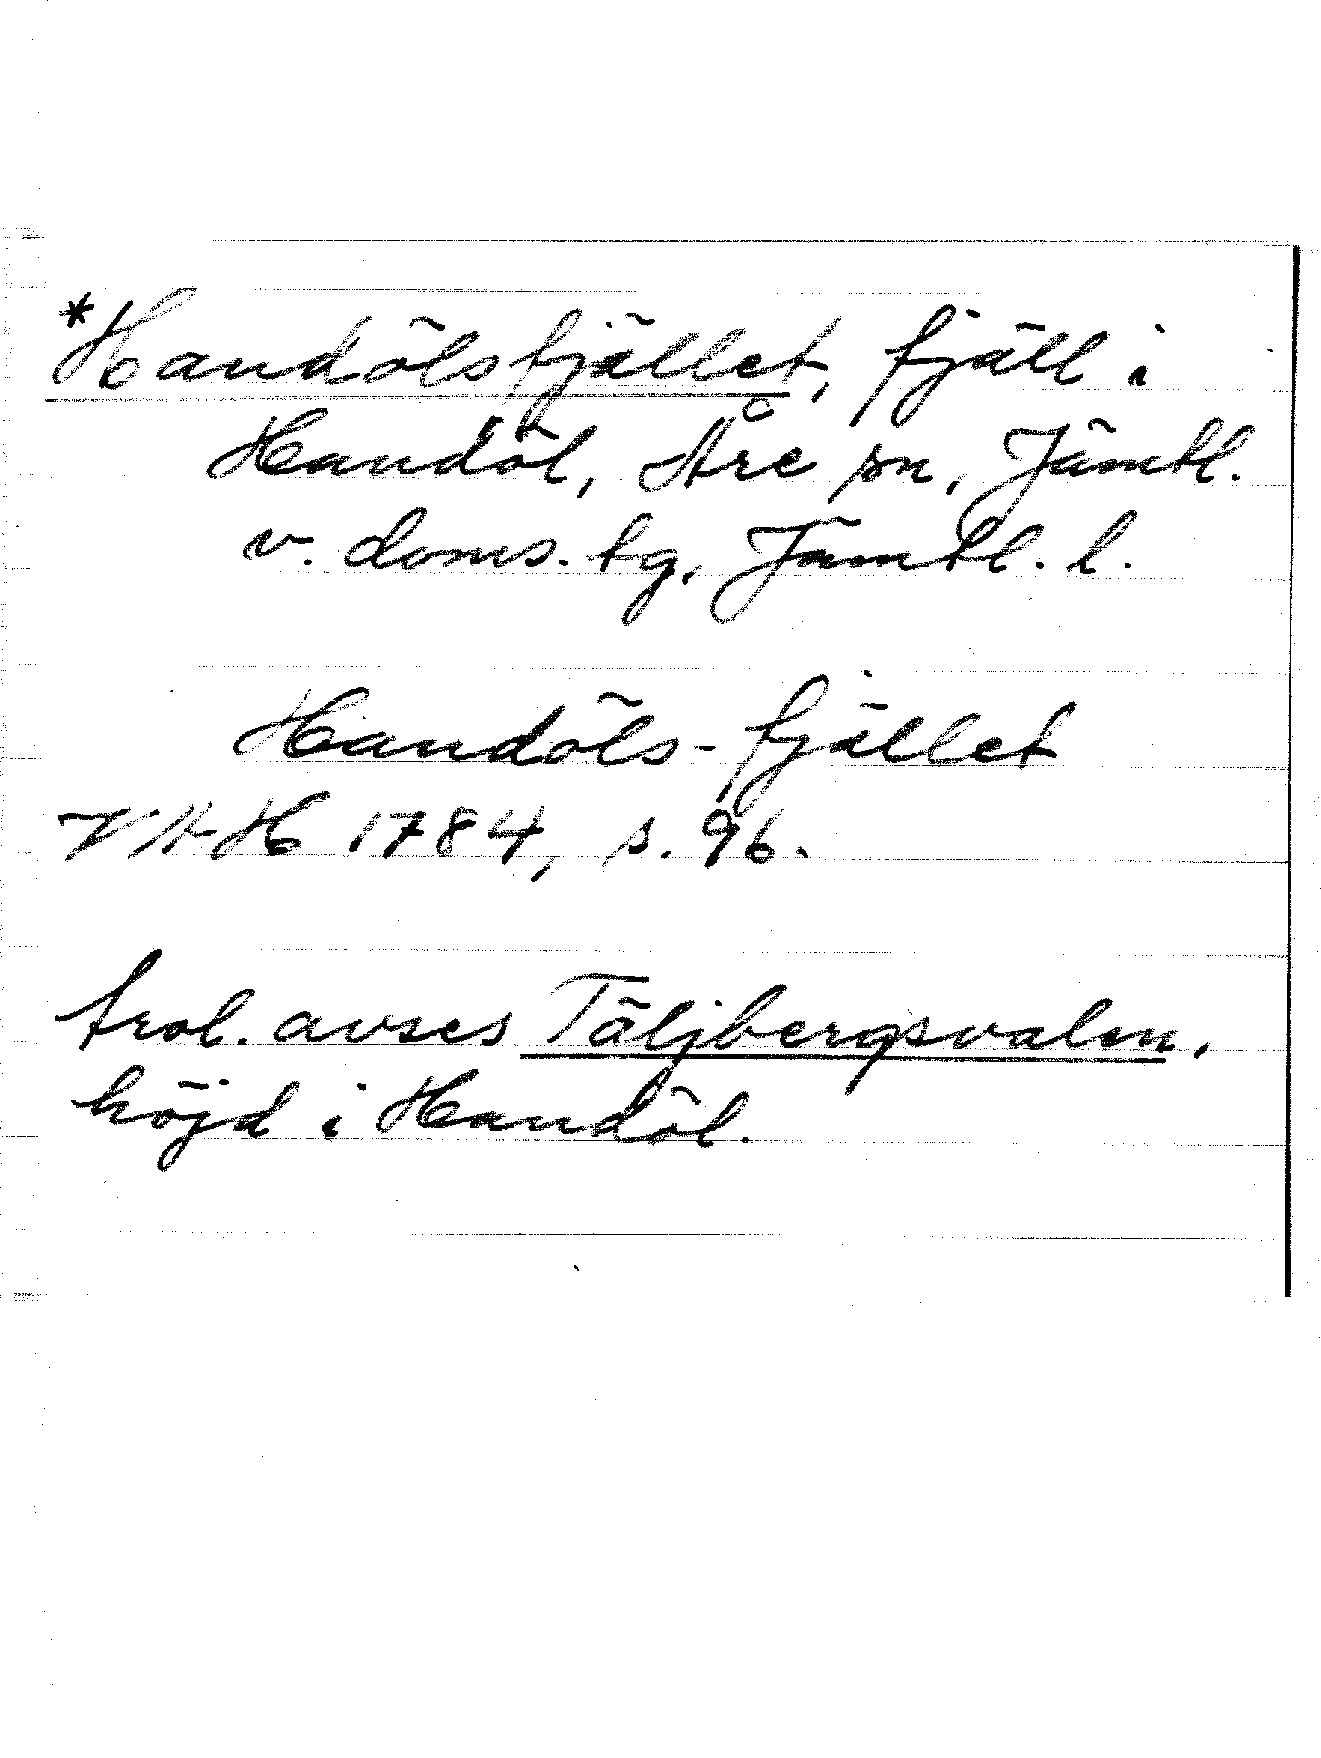 *Handölsfjället, fjäll i
Handöl, Åre sn, Jämtl.
v. doms. tg, Jämtl. l.
Handöls-fjället
VAH 1784, s. 96.
trol. avses Täljbergsvalen,
höjd i Handöl.